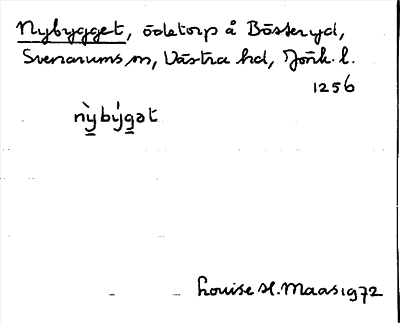 Nybygget, ödetorp å Bösteryd,
Svenarums sn, Västra hd, Jönk. l.
1256
nỳbýgət
Louise H. Maas 1972